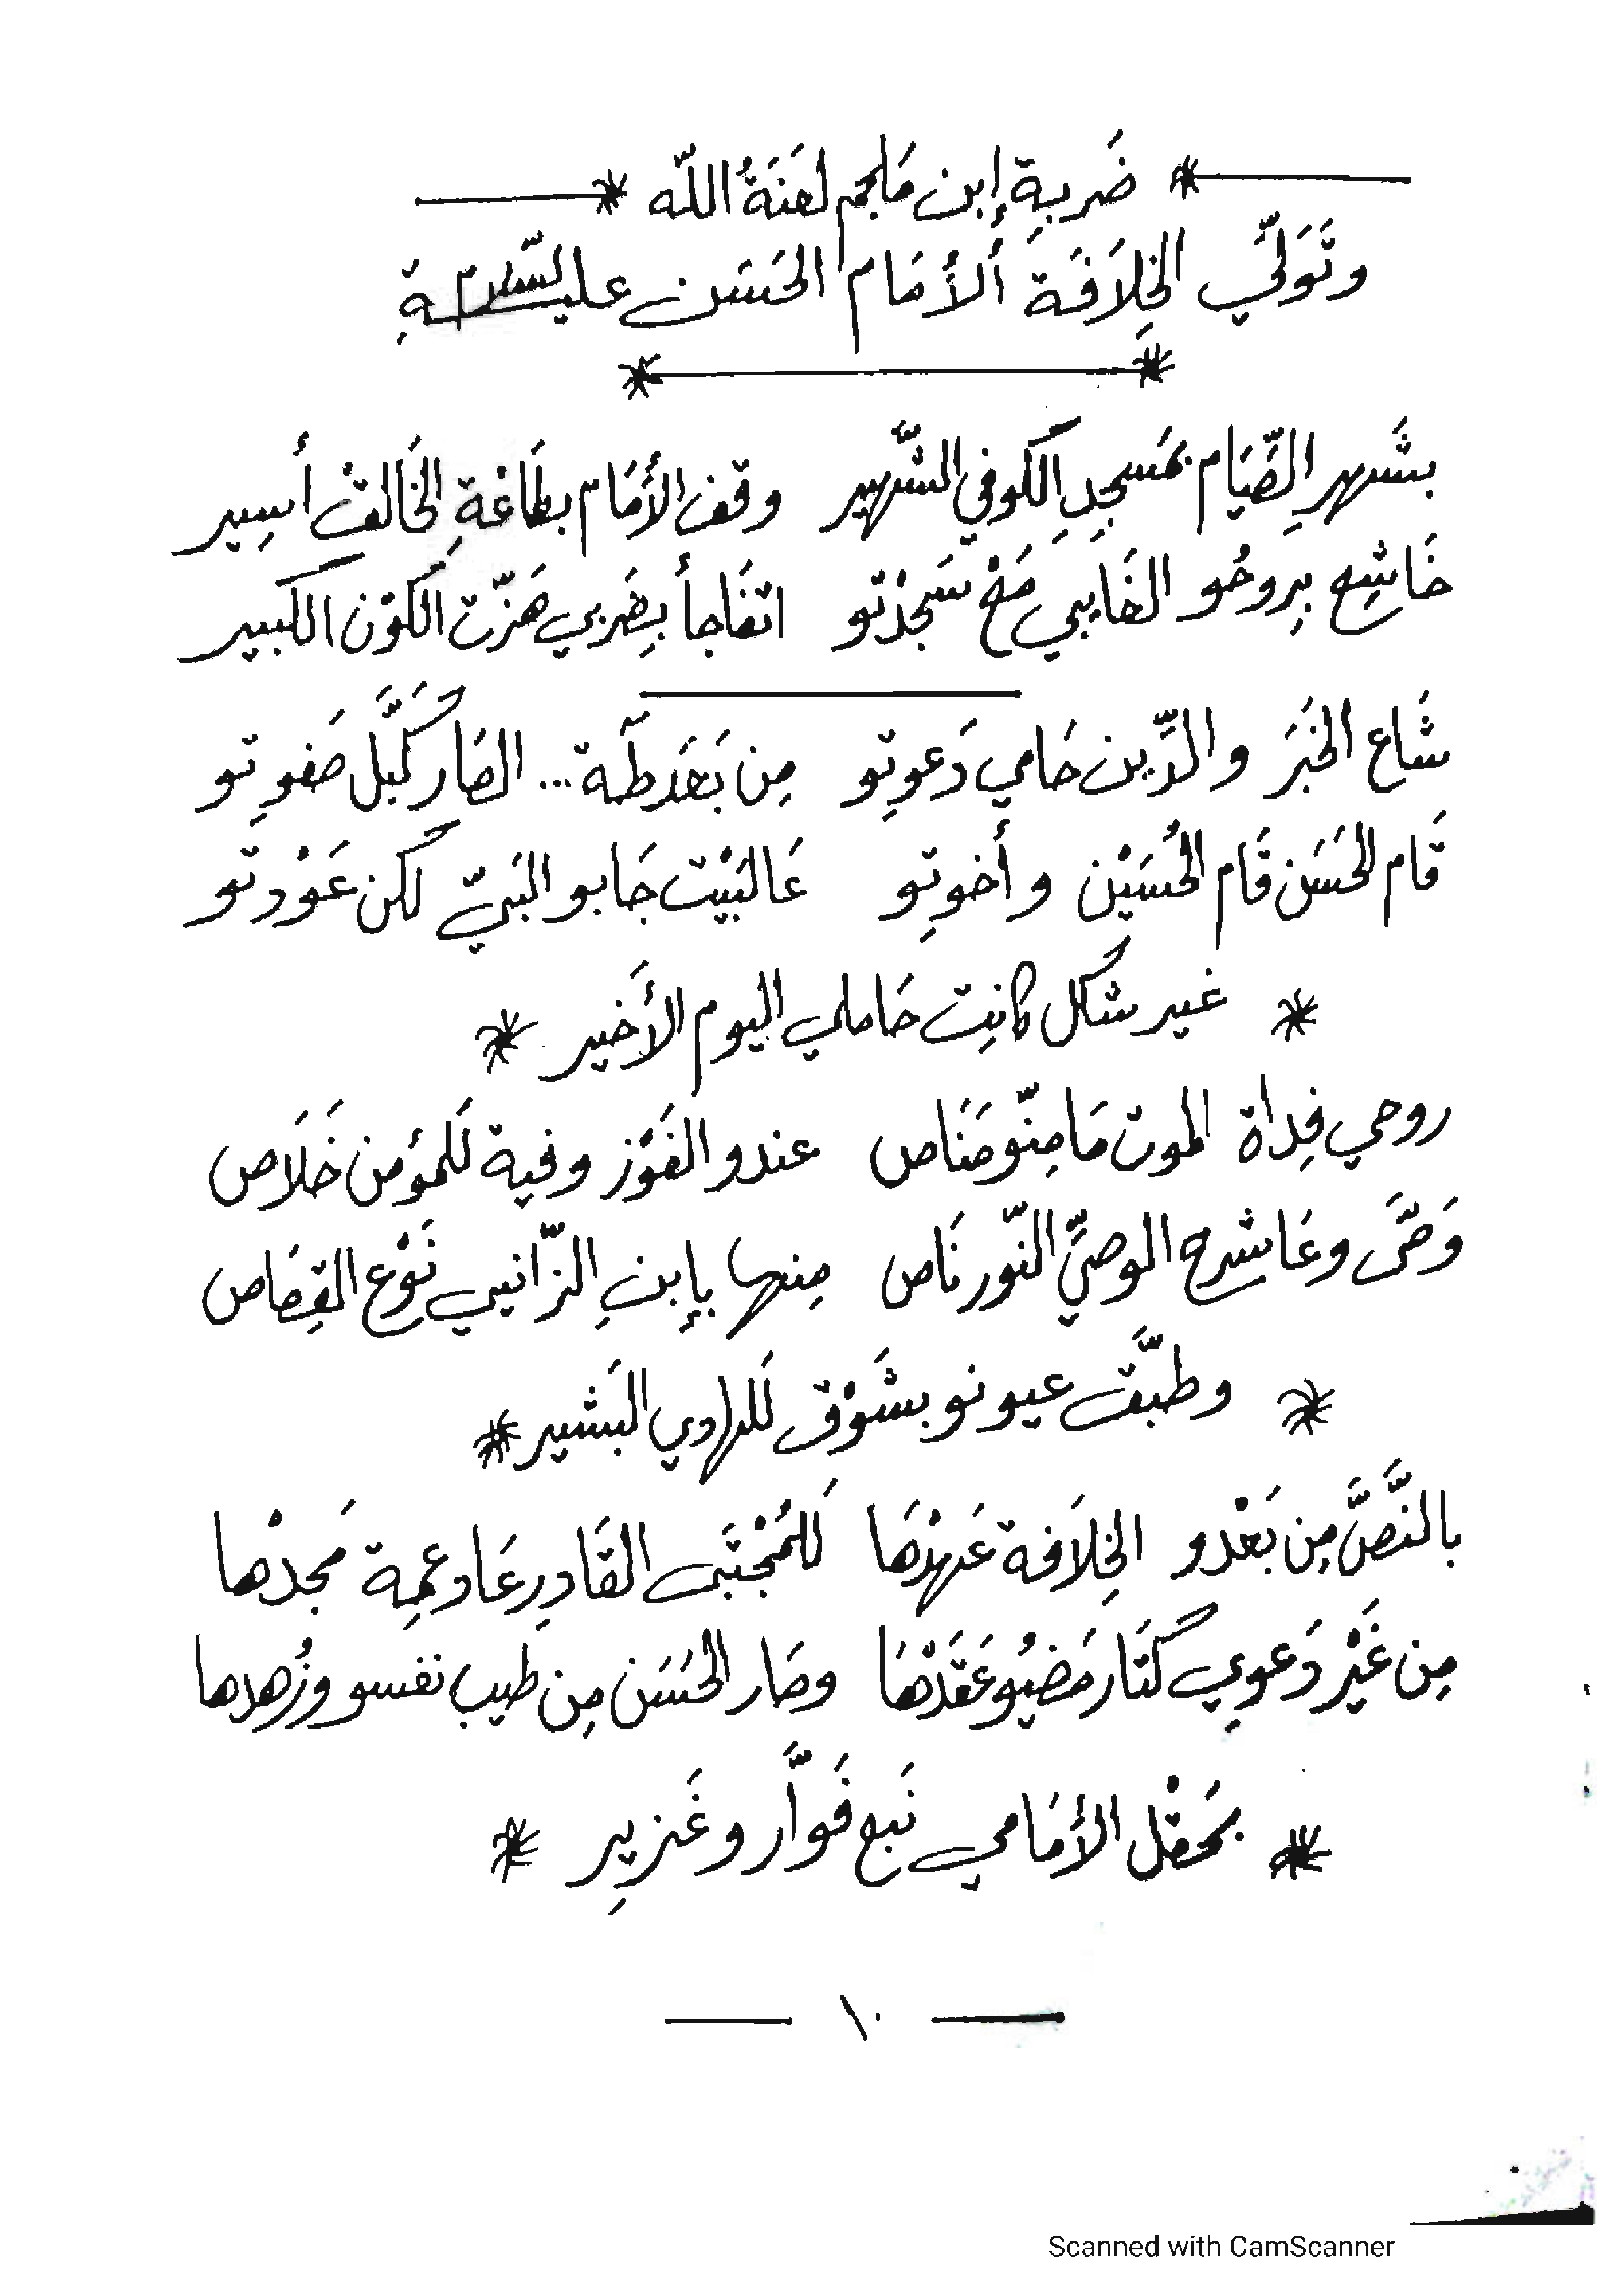 ضَربِةِ إبن مَلجم لعَنَةُ اللّه
وتَوَلّي الخِلَافَة ألأمَام الحَسَن عليه السّلام
بشَهرِ الصِّيَام بمَسجِدِ الكوفي الشَّهير وقف الأمَام بطَاعَةِ الخَالقْ أسِير
خَاشِع بِروحُو الغَايبي مَعْ سَجدْتو اتفَاجأ بِضَربي هَزّت الكَوْن الكبير
شَاع الخَبَر والدِّين حَامي دَعوتِو مِن بَعَد طَه... الصَار كَبَّل صَفوِتو
قَام الحَسَن قَام الحُسَيْن وأخوتِو عَالبَيْت جَابو البَيّ لكن عَوْدتو
غير شَكل كانِت حَاملي اليوم الأَخير
روحي فِداة الموت مَا مِنّو مَنَاص عندو الفَوَز وفية لَلمؤمن خَلَاص
وَصَّى وعَا شرح الوصيِّ النّور نَاص مِنها بإبنِ الزّانيي نَوْع القِصَاص
وطبَّق عيونو بشَوْق لَلهادي البَشير
بالنَّصَّ مِن بَعْدو الخِلَافة عَهدْهَا لَلمُجْتَبَى القَادِر عَا دعمِة مَجدْها
مِن غَيْر دَعوِي كتَار مَضيُو عَقَدْهَا وصَار الحُسَن مِن طيب نفسو وزُهدها
بحَقْل الأمَامي نَبع فَوَّار وغَزِير
١٠
Scanned with CamScanner